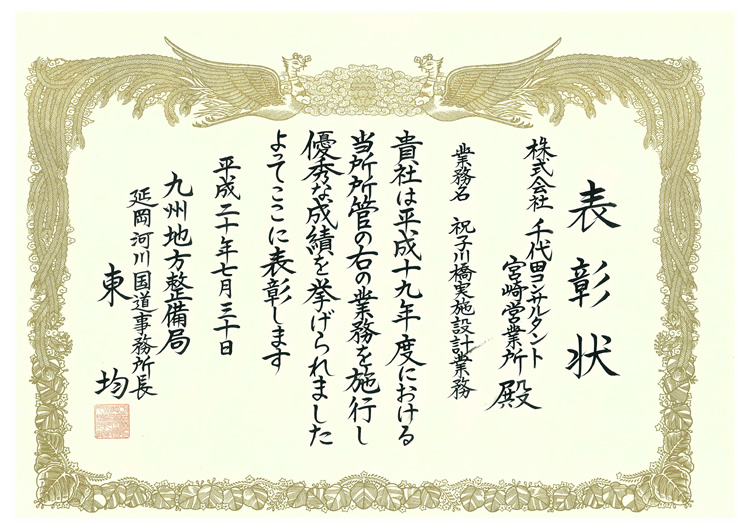 表彰状
株式会社 千代田コンサルタント
宮崎営業所 殿
業務名 祝子川橋実施設計業務
貴社は平成十九年度における
当所所管の右の業務を施行し
優秀な成績を挙げられました
よってここに表彰します
平成二十年七月三十日
九州地方整備局
延岡河川国道事務所長
東 均